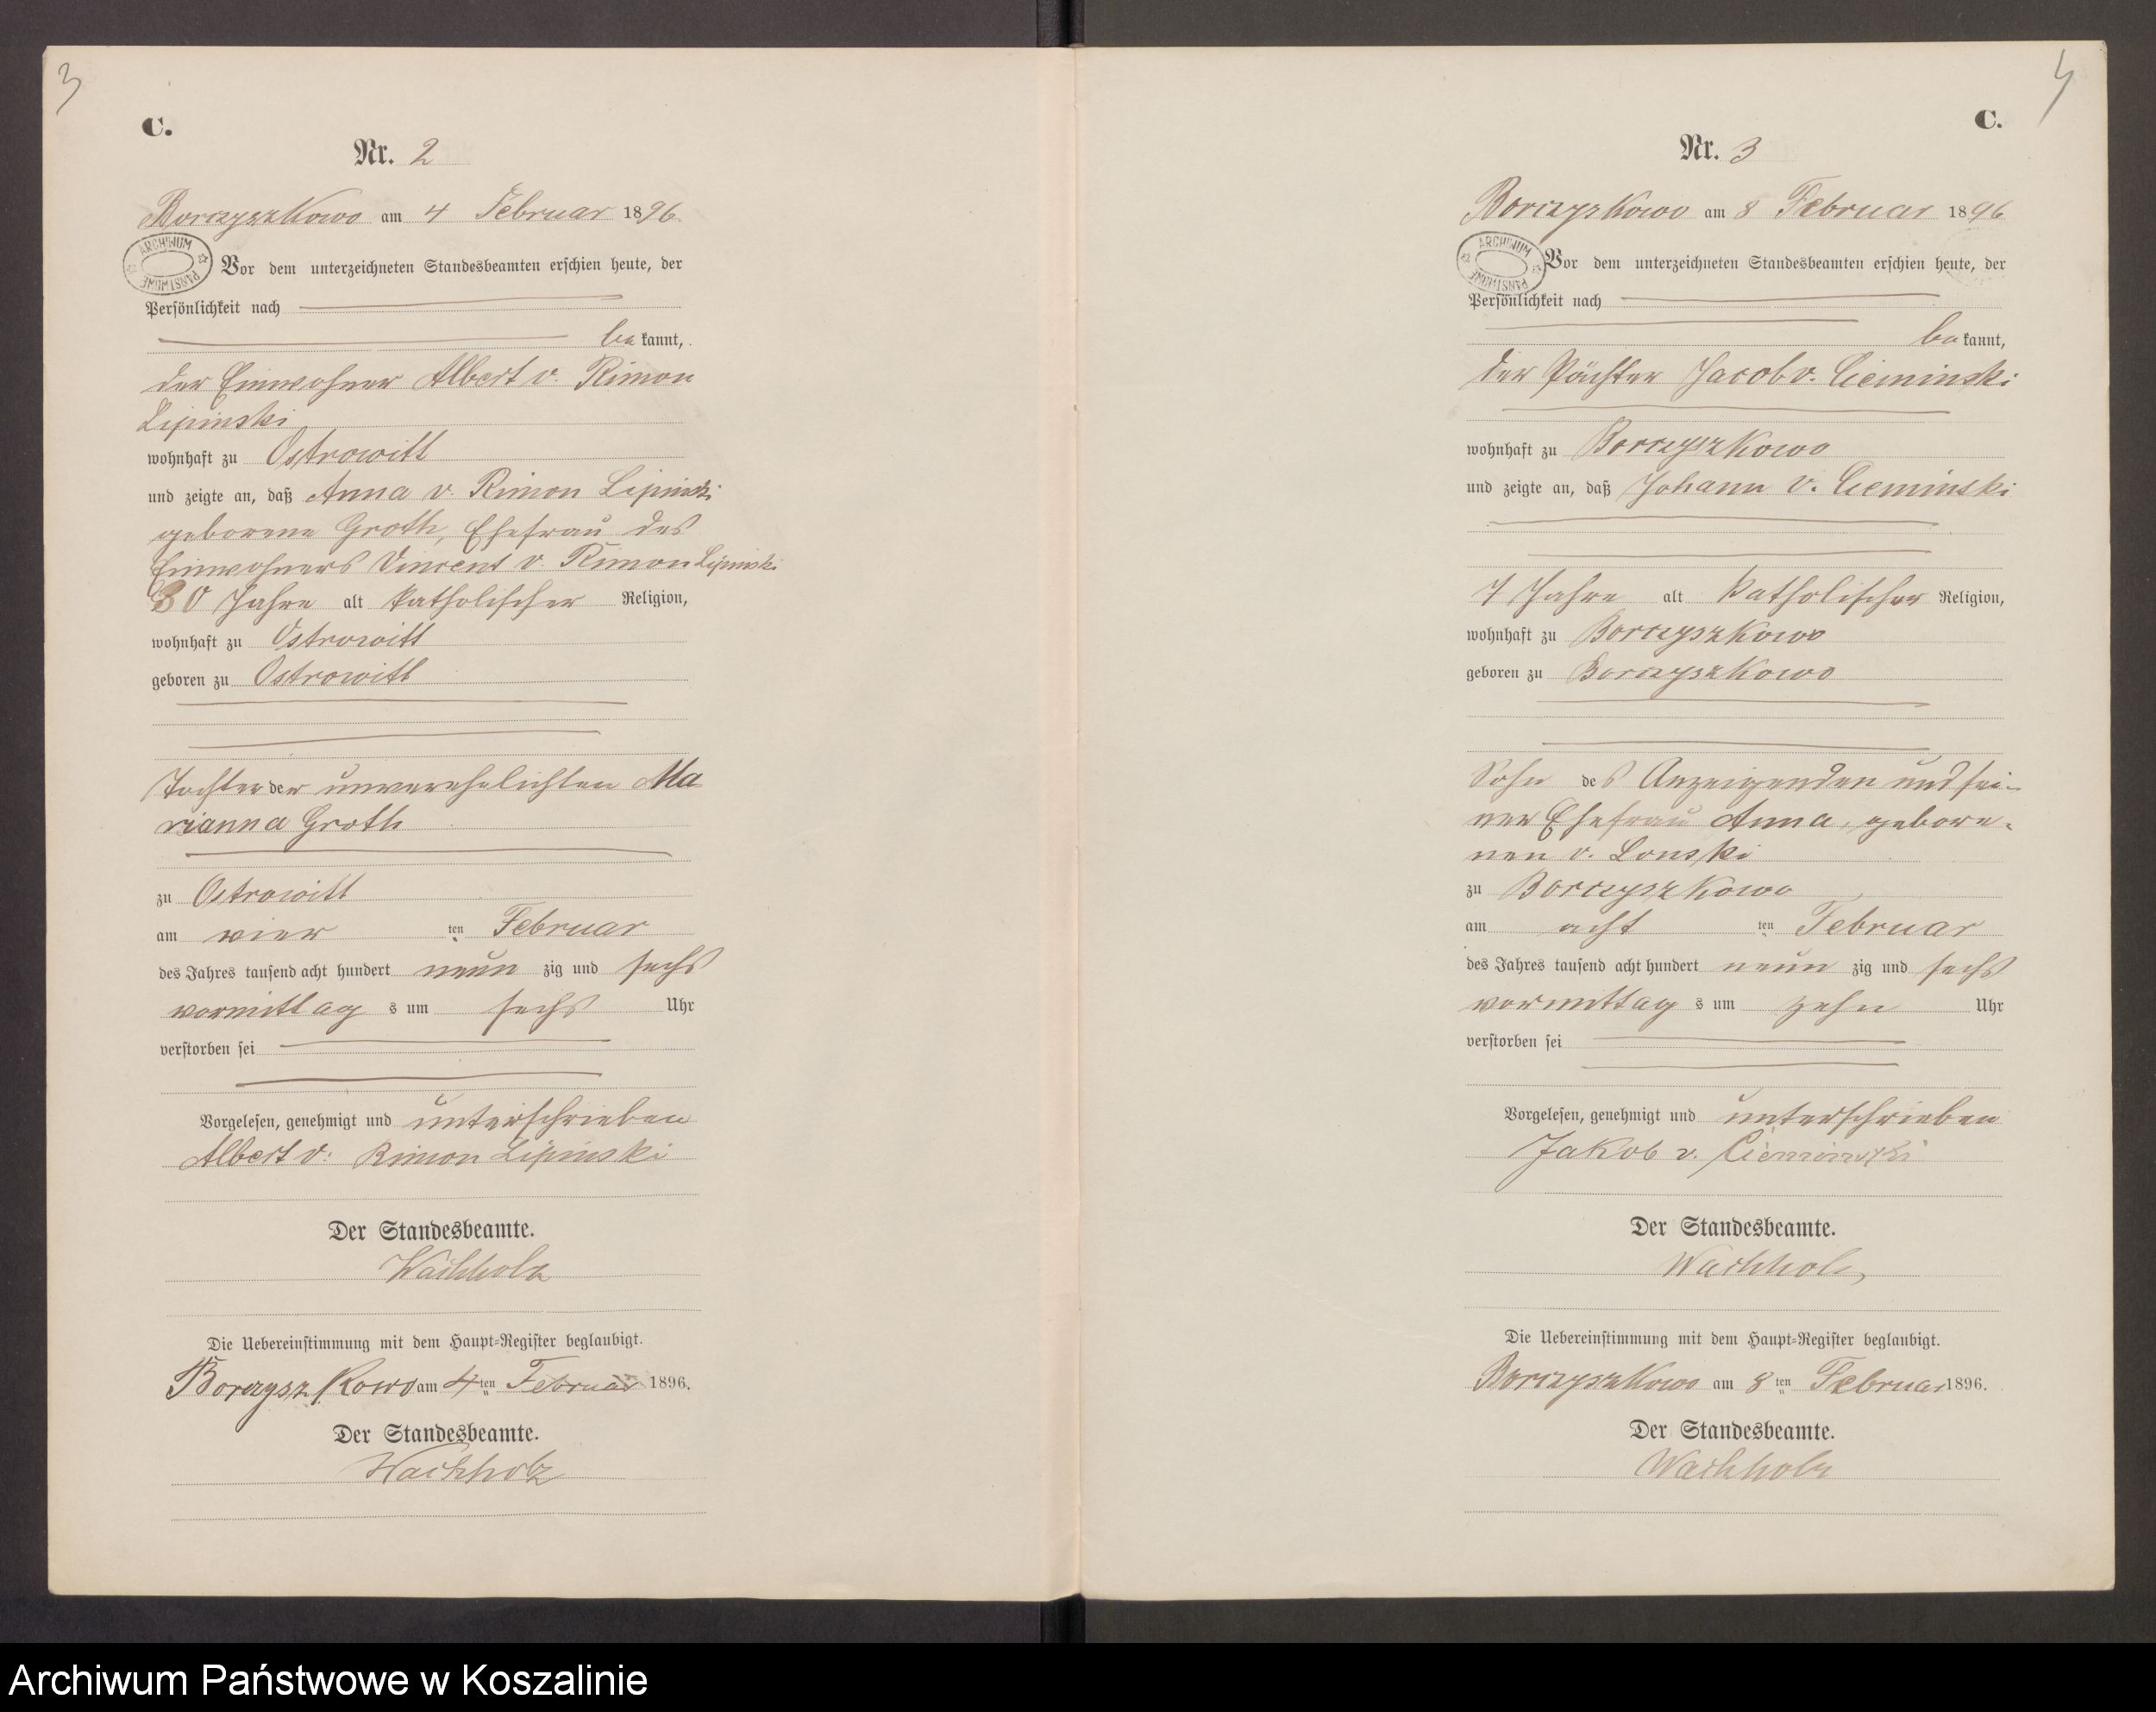 3
C.
Nr. 2
Borczyszkowo am 4 Februar 1896
ARCHIWUM PAŃSTWOWE
Vor dem unterzeichneten Standesbeamten erschien heute, der
Persönlichkeit nach
be kannt,
der Einwohner Albert v. Rimon
Lipinski
wohnhaft zu Ostrowitt
und zeigte an, daß Anna v. Rimon Lipinski
geborene Groth, Ehefrau des
Einwohners Vincent v. Rimon Lipinski
30 Jahre alt katholischer Religion,
wohnhaft zu Ostrowitt
geboren zu Ostrowitt
Tochter der unverehelichten Ma
rianna Groth
zu Ostrowitt
am vier ten Februar
des Jahres tausend acht hundert neun zig und sechs
vormittag s um sechs Uhr
verstorben sei
Vorgelesen, genehmigt und unterschrieben
Albert v: Rimon Lipinski
Der Standesbeamte.
Wachholz
Die Uebereinstimmung mit dem Haupt-Register beglaubigt.
Borczyszkowo am 4 ten Februar 1896.
Der Standesbeamte.
Wachholz
4
C.
Nr. 3
Borczyskowo am 8 Februar 1896
ARCHIWUM PAŃSTWOWE
Vor dem unterzeichneten Standesbeamten erschien heute, der
Persönlichkeit nach
be kannt,
der Pächter Jacob v. Cieminski
wohnhaft zu Borczyszkowo
und zeigte an, daß Johann v. Cieminski
7 Jahre alt katholischer Religion,
wohnhaft zu Borczyszkowo
geboren zu Borczyszkowo
Sohn des Anzeigenden und sei-
ner Ehefrau Anna, gebore-
nen v. Lonski
zu Borczyszkowo
am acht ten Februar
des Jahres tausend acht hundert neun zig und sechs
vormittag s um zehn Uhr
verstorben sei
Vorgelesen, genehmigt und unterschrieben
Jakob v. Cieminski
Der Standesbeamte.
Wachholz
Die Uebereinstimmung mit dem Haupt-Register beglaubigt.
Borczyszkowo am 8 ten Februar 1896.
Der Standesbeamte.
Wachholz
Archiwum Państwowe w Koszalinie